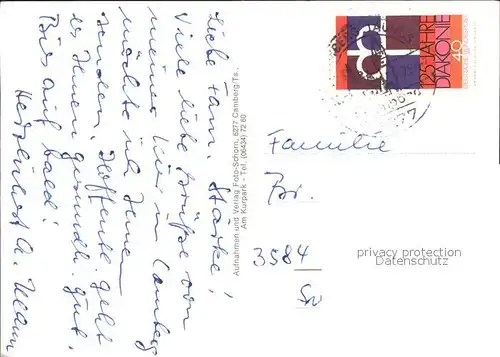 Liebe Fam. Starke!
Viele liebe Grüße von
meiner Kur in Camberg
möchte ich Ihnen
senden. Hoffentl. geht
es Ihnen gesundh. gut.
Bis auf bald!
Herzlichst A. Ullmann
Aufnahmen und Verlag Foto-Schorn, 6277 Camberg/Ts.
Am Kurpark - Tel. (06434) 72 60
125 JAHRE
DIAKONIE
40
DEUTSCHE BUNDESPOST
Familie
Br.
3584
privacy protection
Datenschutz